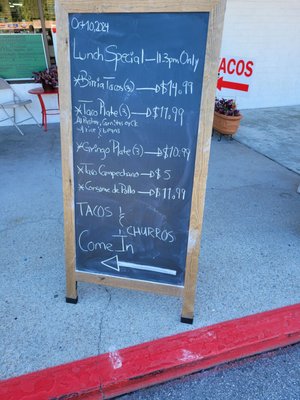 Oct 10, 2024
Lunch Special — 11-3pm Only
* Birria Tacos (3) — $14.99
* Taco Plate (3) — $11.99
Al Pastor, Carnitas or CK
* rice & beans
* Gringo Plate (3) — $10.99
* Taco Campechano — $5
* Consome de Pollo — $11.99
TACOS &
CHURROS
Come In
TACOS